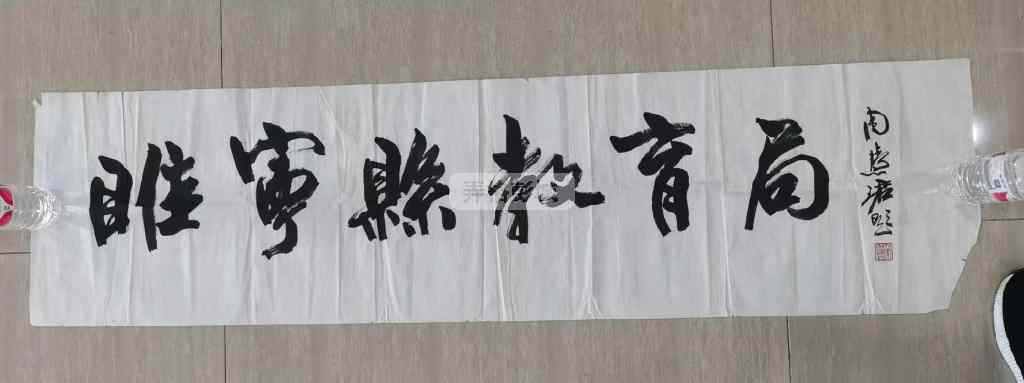 睢寧縣教育局